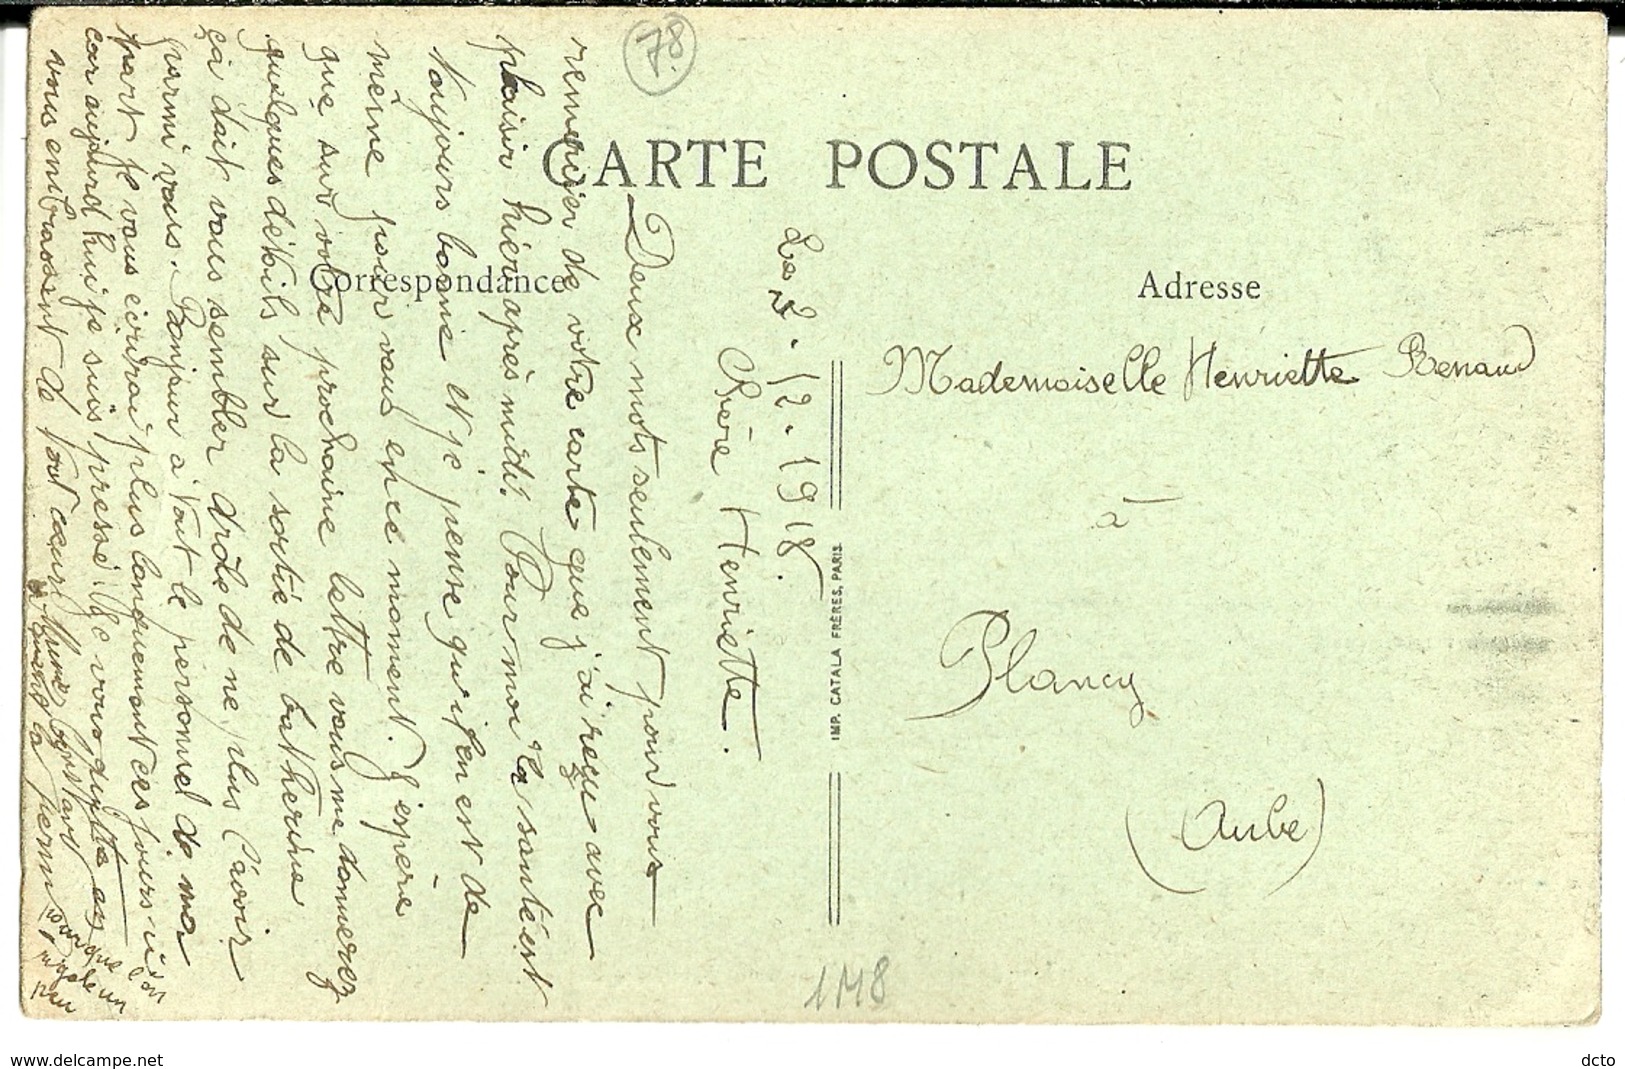 78
CARTE POSTALE
Correspondance
Adresse
Le 2-12-1918.
Chère Henriette.
Deux mots seulement pour vous
remercier de votre carte que j'ai reçu avec
plaisir hier après midi. Pour moi la santé est
toujours bonne et je pense qu'il en est de
même pour vous en ce moment. J'espère
que sur votre prochaine lettre vous me donnerez
quelques détails sur la sortie de Catherine
ça doit vous sembler drôle de ne plus l'avoir
parmi vous. Bonjour à tout le personnel de ma
part je vous écrirai plus longuement ces jours-ci
car aujourd'hui je suis pressé. Je vous quitte en
vous embrassant de tout cœur.
pour que l'on
rigole un
peu
Mademoiselle Henriette Renaud
à
Plancy
(Aube)
IMP. CATALA FRÈRES, PARIS
1M8
www.delcampe.net
dcto